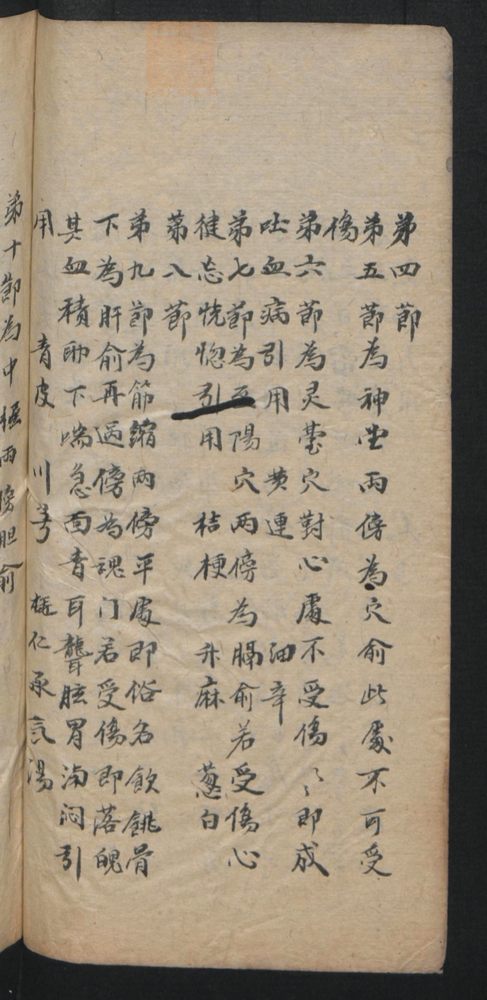 第四節
第五節為神堂兩傍為穴俞此處不可受
傷
第六節為灵臺穴對心處不受傷々即成
吐血病引用 黄連 細辛
第七節為至陽穴兩傍為膈俞若受傷心
徤忘恍惚引用 桔梗 升麻 葱白
第八節
第九節為筋縮兩傍平處即俗名飲銚骨
下為肝俞再過傍為魂门若受傷即落魄
其血積肋下喘急面青耳聾眩胃满闷引
用 青皮 川芎 桃仁承氣湯
第十節為中樞兩傍胆俞